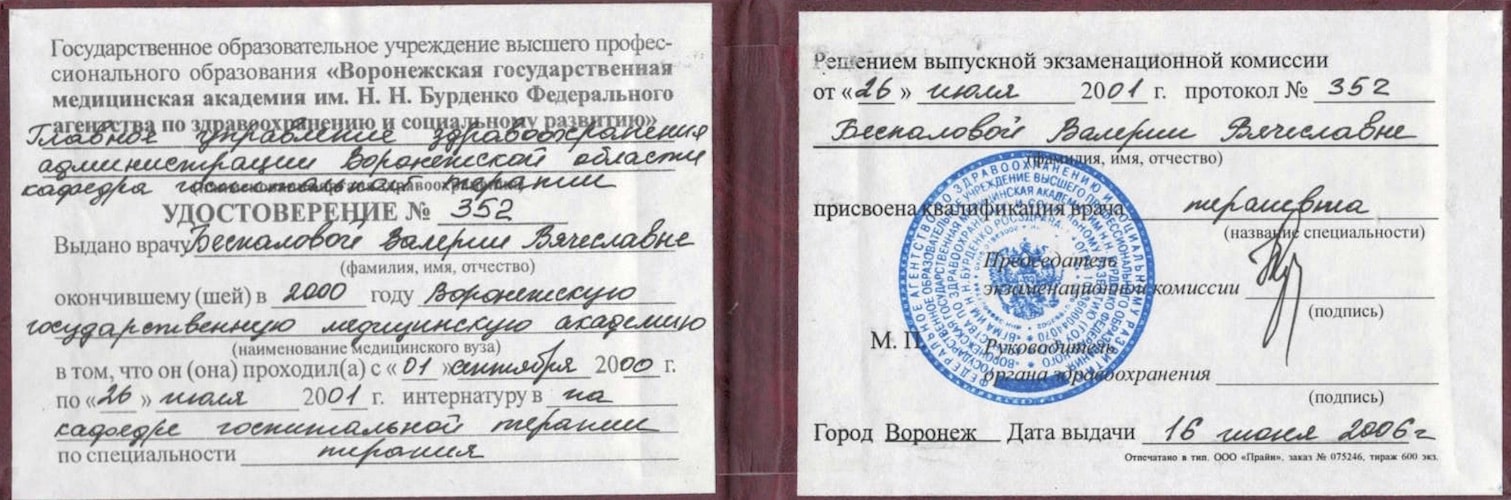 Государственное образовательное учреждение высшего профес-
сионального образования «Воронежская государственная
медицинская академия им. Н. Н. Бурденко Федерального
агентства по здравоохранению и социальному развитию»
Главное управление здравоохранения
администрации Воронежской области
кафедра госпитальной терапии
УДОСТОВЕРЕНИЕ № 352
Выдано врачу Беспаловой Валерии Вячеславне
(фамилия, имя, отчество)
окончившему (шей) в 2000 году Воронежскую
государственную медицинскую академию
(наименование медицинского вуза)
в том, что он (она) проходил(а) с «01» сентября 2000 г.
по «26» июля 2001 г. интернатуру в на
кафедре госпитальной терапии
по специальности терапия
Решением выпускной экзаменационной комиссии
от «26» июля 2001 г. протокол № 352
Беспаловой Валерии Вячеславне
(фамилия, имя, отчество)
присвоена квалификация врача терапевта
(название специальности)
Председатель
экзаменационной комиссии
(подпись)
М. П.
Руководитель
органа здравоохранения
(подпись)
Город Воронеж Дата выдачи 16 июня 2006г
Отпечатано в тип. ООО «Прайн», заказ № 075246, тираж 600 экз.